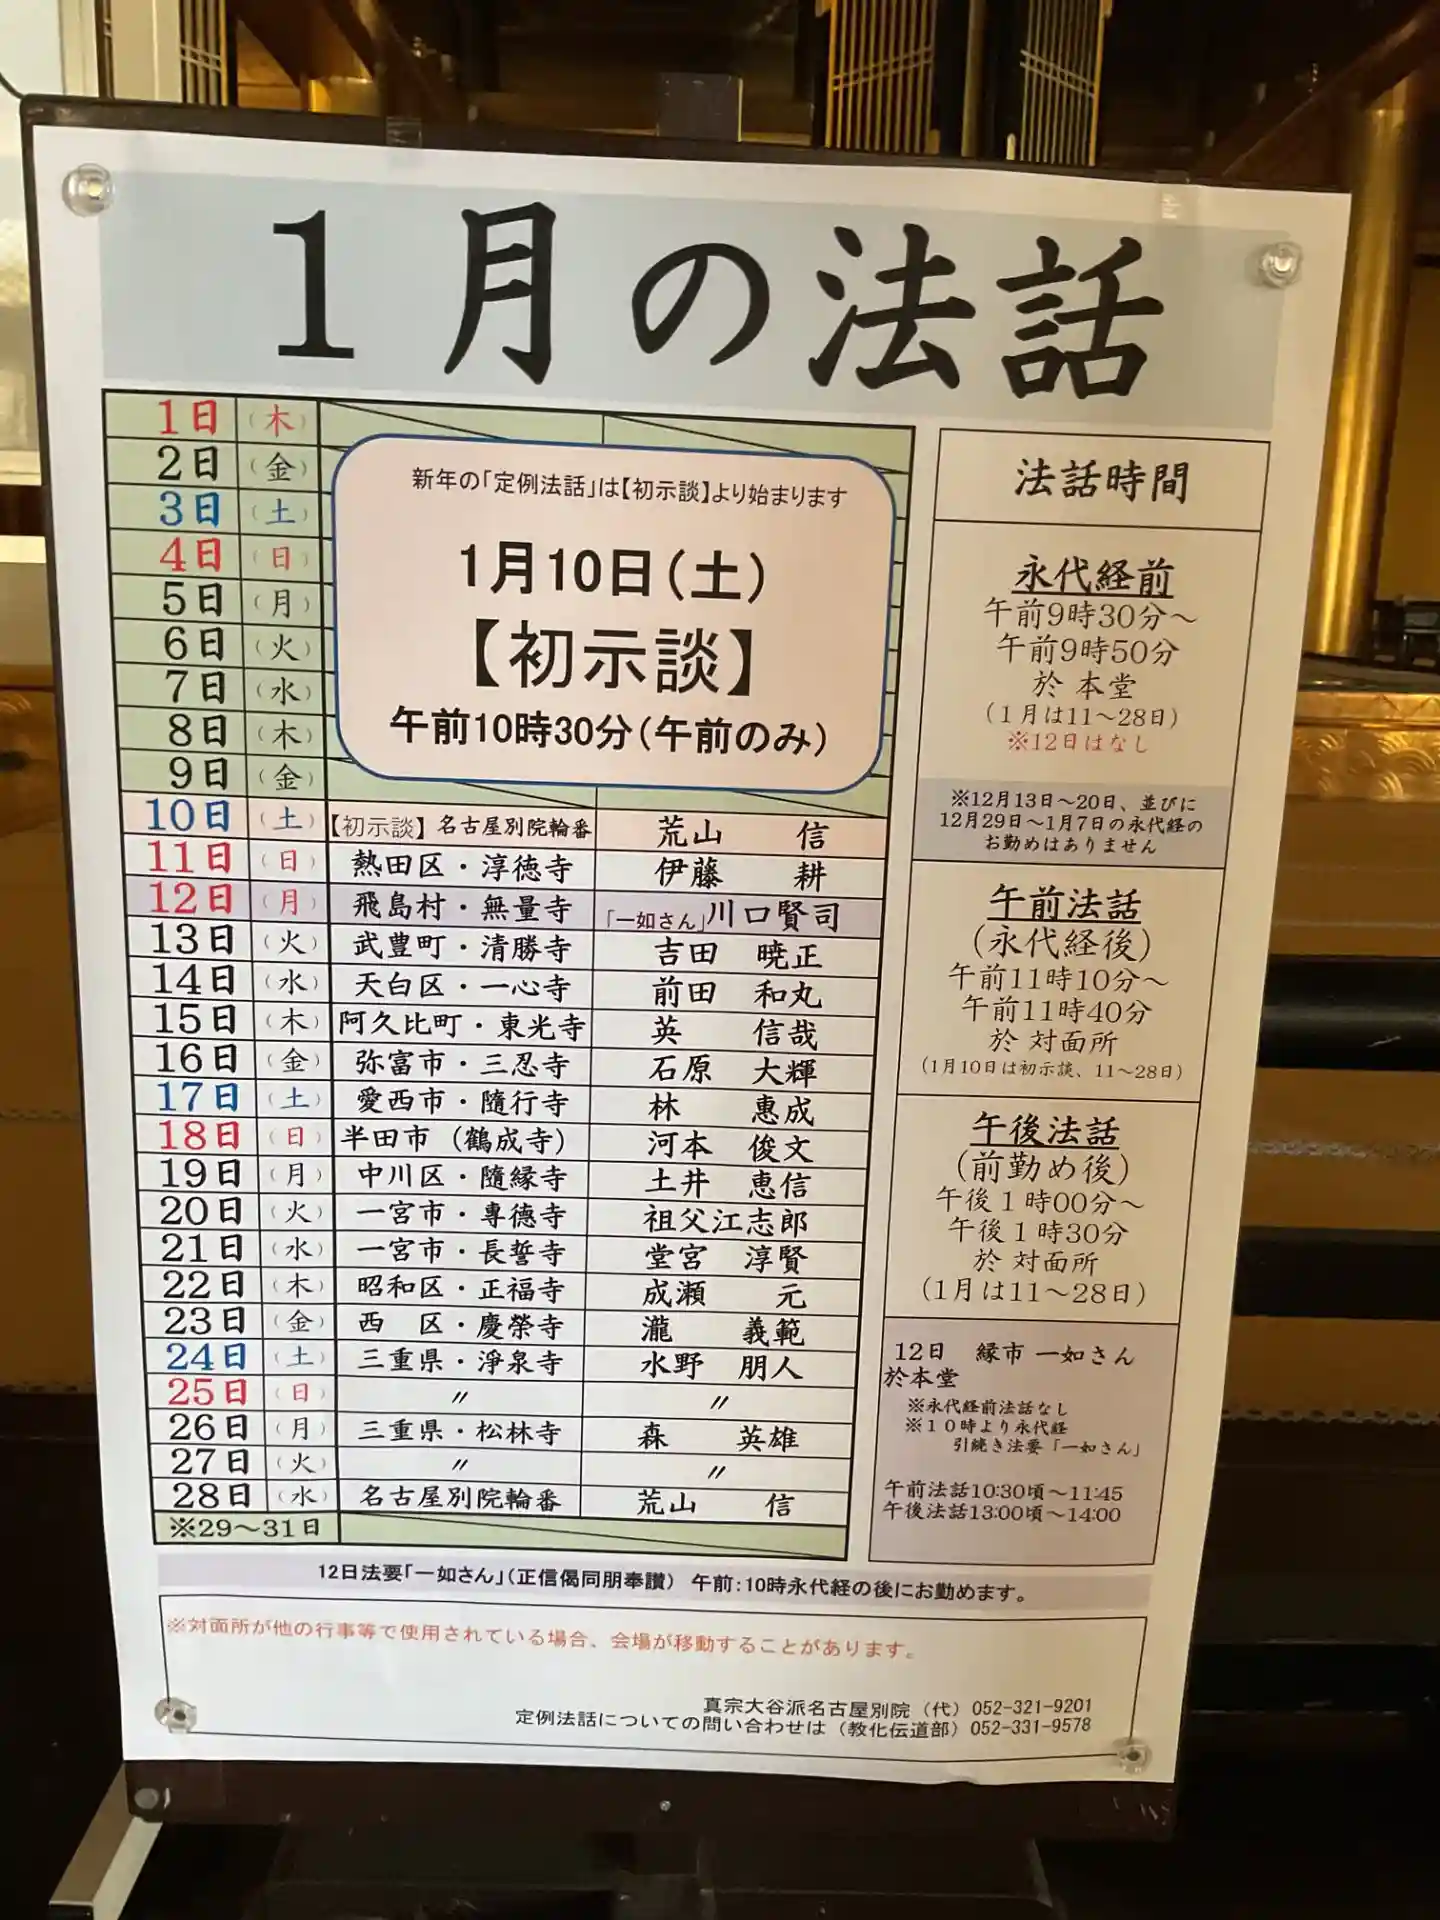 1月の法話
1日 （木）
2日 （金）
3日 （土）
4日 （日）
5日 （月）
6日 （火）
7日 （水）
8日 （木）
9日 （金）
新年の「定例法話」は【初示談】より始まります
1月10日（土）
【初示談】
午前10時30分（午前のみ）
10日 （土） 【初示談】名古屋別院輪番 荒山 信
11日 （日） 熱田区・淳徳寺 伊藤 耕
12日 （月） 飛島村・無量寺 「一如さん」川口賢司
13日 （火） 武豊町・清勝寺 吉田 暁正
14日 （水） 天白区・一心寺 前田 和丸
15日 （木） 阿久比町・東光寺 英 信哉
16日 （金） 弥富市・三忍寺 石原 大輝
17日 （土） 愛西市・隨行寺 林 惠成
18日 （日） 半田市（鶴成寺） 河本 俊文
19日 （月） 中川区・隨縁寺 土井 惠信
20日 （火） 一宮市・専德寺 祖父江志郎
21日 （水） 一宮市・長誓寺 堂宮 淳賢
22日 （木） 昭和区・正福寺 成瀬 元
23日 （金） 西 区・慶榮寺 瀧 義範
24日 （土） 三重県・淨泉寺 水野 朋人
25日 （日） 〃 〃
26日 （月） 三重県・松林寺 森 英雄
27日 （火） 〃 〃
28日 （水） 名古屋別院輪番 荒山 信
※29～31日
法話時間
永代経前
午前9時30分～
午前9時50分
於 本堂
（1月は11～28日）
※12日はなし
※12月13日～20日、並びに
12月29日～1月7日の永代経の
お勤めはありません
午前法話
（永代経後）
午前11時10分～
午前11時40分
於 対面所
（1月10日は初示談、11～28日）
午後法話
（前勤め後）
午後１時00分～
午後１時30分
於 対面所
（1月は11～28日）
12日 縁市 一如さん
於本堂
※永代経前法話なし
※１０時より永代経
引続き法要「一如さん」
午前法話10:30頃～11:45
午後法話13:00頃～14:00
12日法要「一如さん」（正信偈同朋奉讃） 午前：10時永代経の後にお勤めます。
※対面所が他の行事等で使用されている場合、会場が移動することがあります。
真宗大谷派名古屋別院（代）052-321-9201
定例法話についての問い合わせは（教化伝道部）052-331-9578